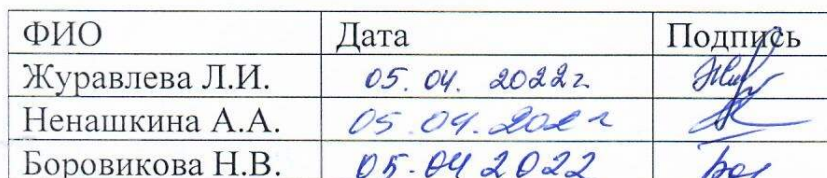 ФИО Дата Подпись
Журавлева Л.И. 05.04. 2022г
Ненашкина А.А. 05.04.2022
Боровикова Н.В. 05.04 2022